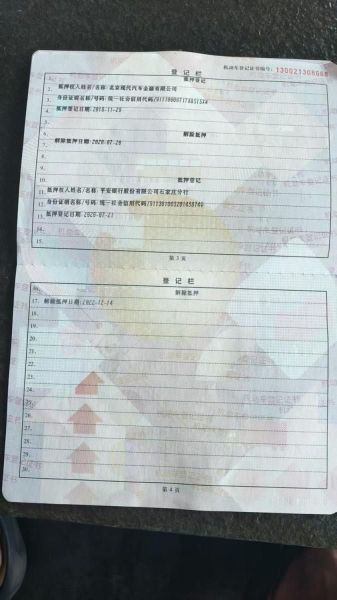 机动车登记证书编号：
登记栏
1. 抵押登记
2. 抵押权人姓名/名称：北京现代汽车金融有限公司
3. 身份证明名称/号码：统一社会信用代码/
4. 抵押登记日期：2018-11-29
5.
6. 解除抵押
7. 解除抵押日期：2020-07-20
8.
9.
10. 抵押登记
11. 抵押权人姓名/名称：平安银行股份有限公司石家庄分行
12. 身份证明名称/号码：统一社会信用代码/
13. 抵押登记日期：2020-07-21
14.
15.
第 3 页
登记栏
16. 解除抵押
17. 解除抵押日期：2022-12-14
18.
19.
20.
21.
22.
23.
24.
25.
26.
27.
28.
29.
30.
第 4 页